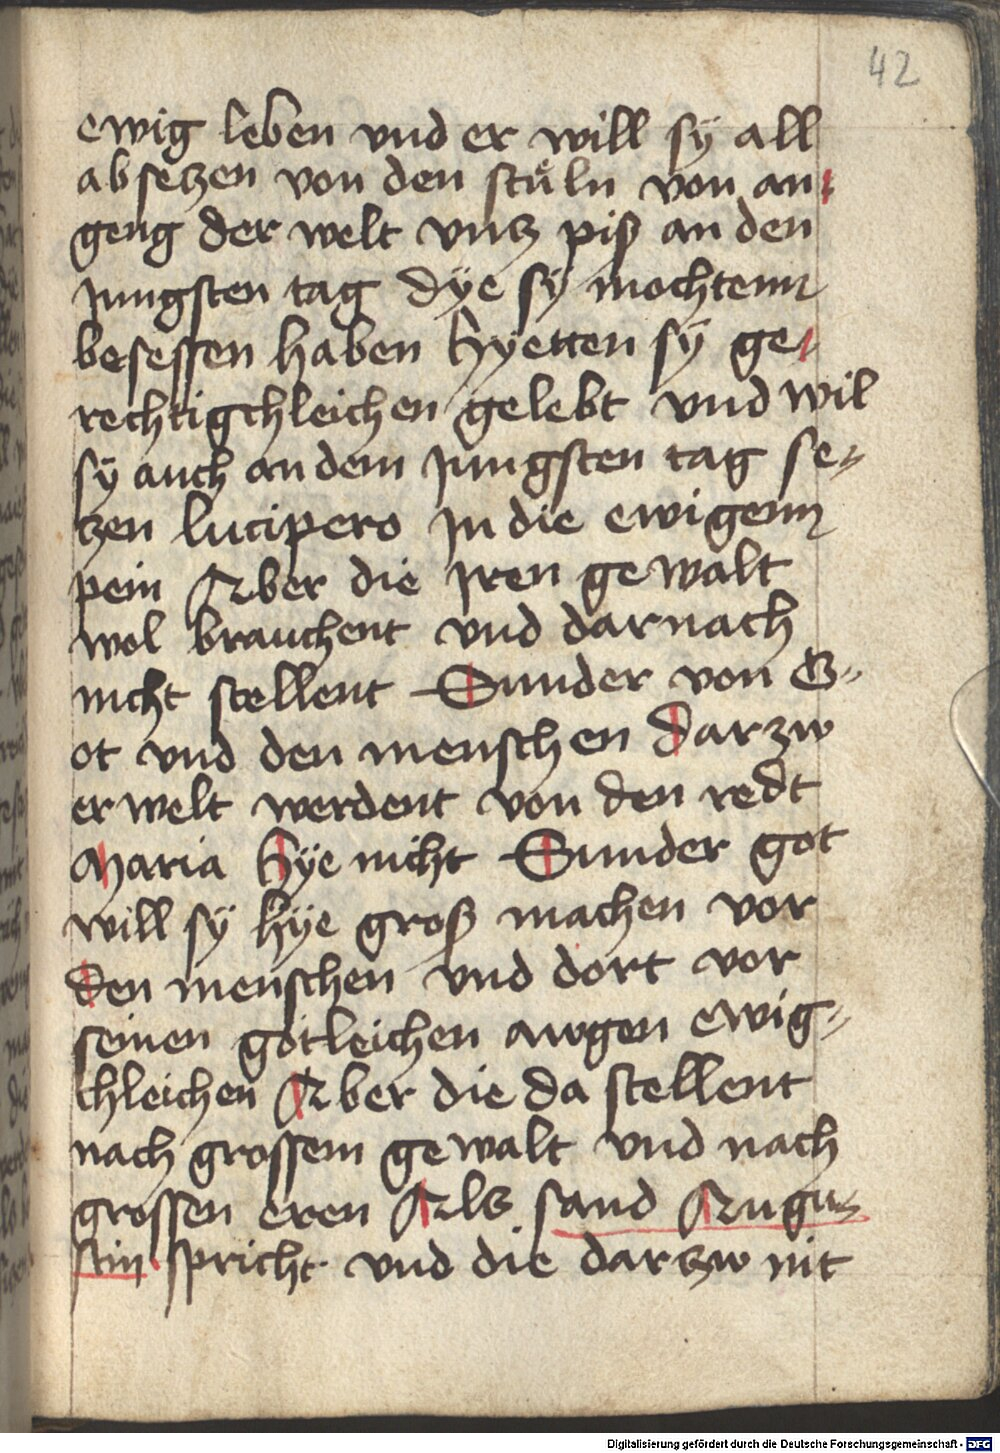 42
ewig leben vnd er will sÿ all
absetzen von den stůln von an-
geng der welt vntz piß an den
Jungsten tag dÿe sÿ mochtenn
besessen haben hÿetten sÿ ge-
rechtigchleichen gelebt vnd wil
sÿ auch an dem Jungsten tag se-
tzen lucipero In die ewigenn
pein Aber die Iren gewalt
wol brauchent vnd darnach
nicht stellent Sunder von G-
ot vnd den menschen darzw
erwelt werdent von den redt
Maria hÿe nicht Sunder got
will sÿ hÿe groß machen vor
den menschen vnd dort vor
seinen gotleichen awgen ewig-
chleichen Aber die da stellent
nach grossem gewalt vnd nach
grossen eren Als sand Augu-
stin spricht vnd die dartzw nit
Digitalisierung gefördert durch die Deutsche Forschungsgemeinschaft - DFG